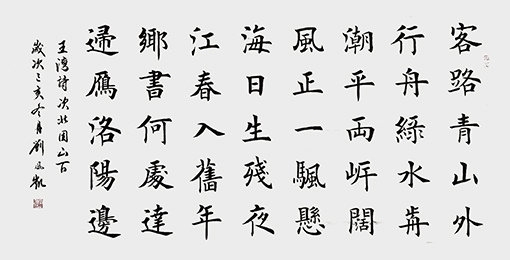 客路青山外
行舟綠水歬
潮平兩岸闊
風正一颿懸
海日生殘夜
江春入舊年
鄉書何處達
歸鴈洛陽邊
王灣詩次北固山
歲次己亥冬月劉凱